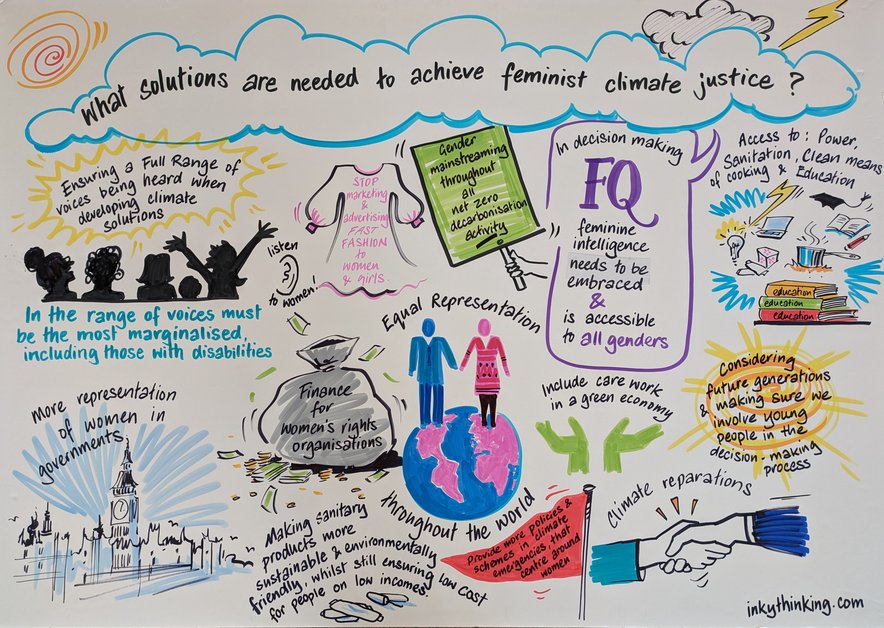 What solutions are needed to achieve feminist climate justice ?
Ensuring a Full Range of
voices being heard when
developing climate
solutions
In the range of voices must
be the most marginalised,
including those with disabilities
listen
to women!
STOP
marketing
&
advertising
FAST
FASHION
to
women
& girls.
Gender
mainstreaming
throughout
all
net zero
decarbonisation
activity
In decision making
FQ
feminine
intelligence
needs to be
embraced
&
is accessible
to all genders
Access to : Power,
Sanitation, Clean means
of cooking & Education
education
education
education
More representation
of women in
governments
Finance
for
women's rights
organisations
Equal Representation
throughout the world
Include care work
in a green economy
Considering
future generations
& making sure we
involve young
people in the
decision-making
process
Making Sanitary
products more
sustainable & environmentally
friendly, whilst still ensuring low cost
for people on low incomes
Provide more policies &
schemes in climate
emergencies that
centre around
women
Climate reparations
inkythinking.com